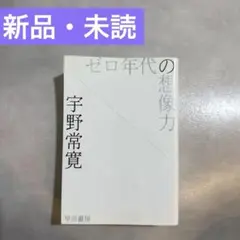 新品・未読
ゼロ年代の想像力
宇野常寛
早川書房